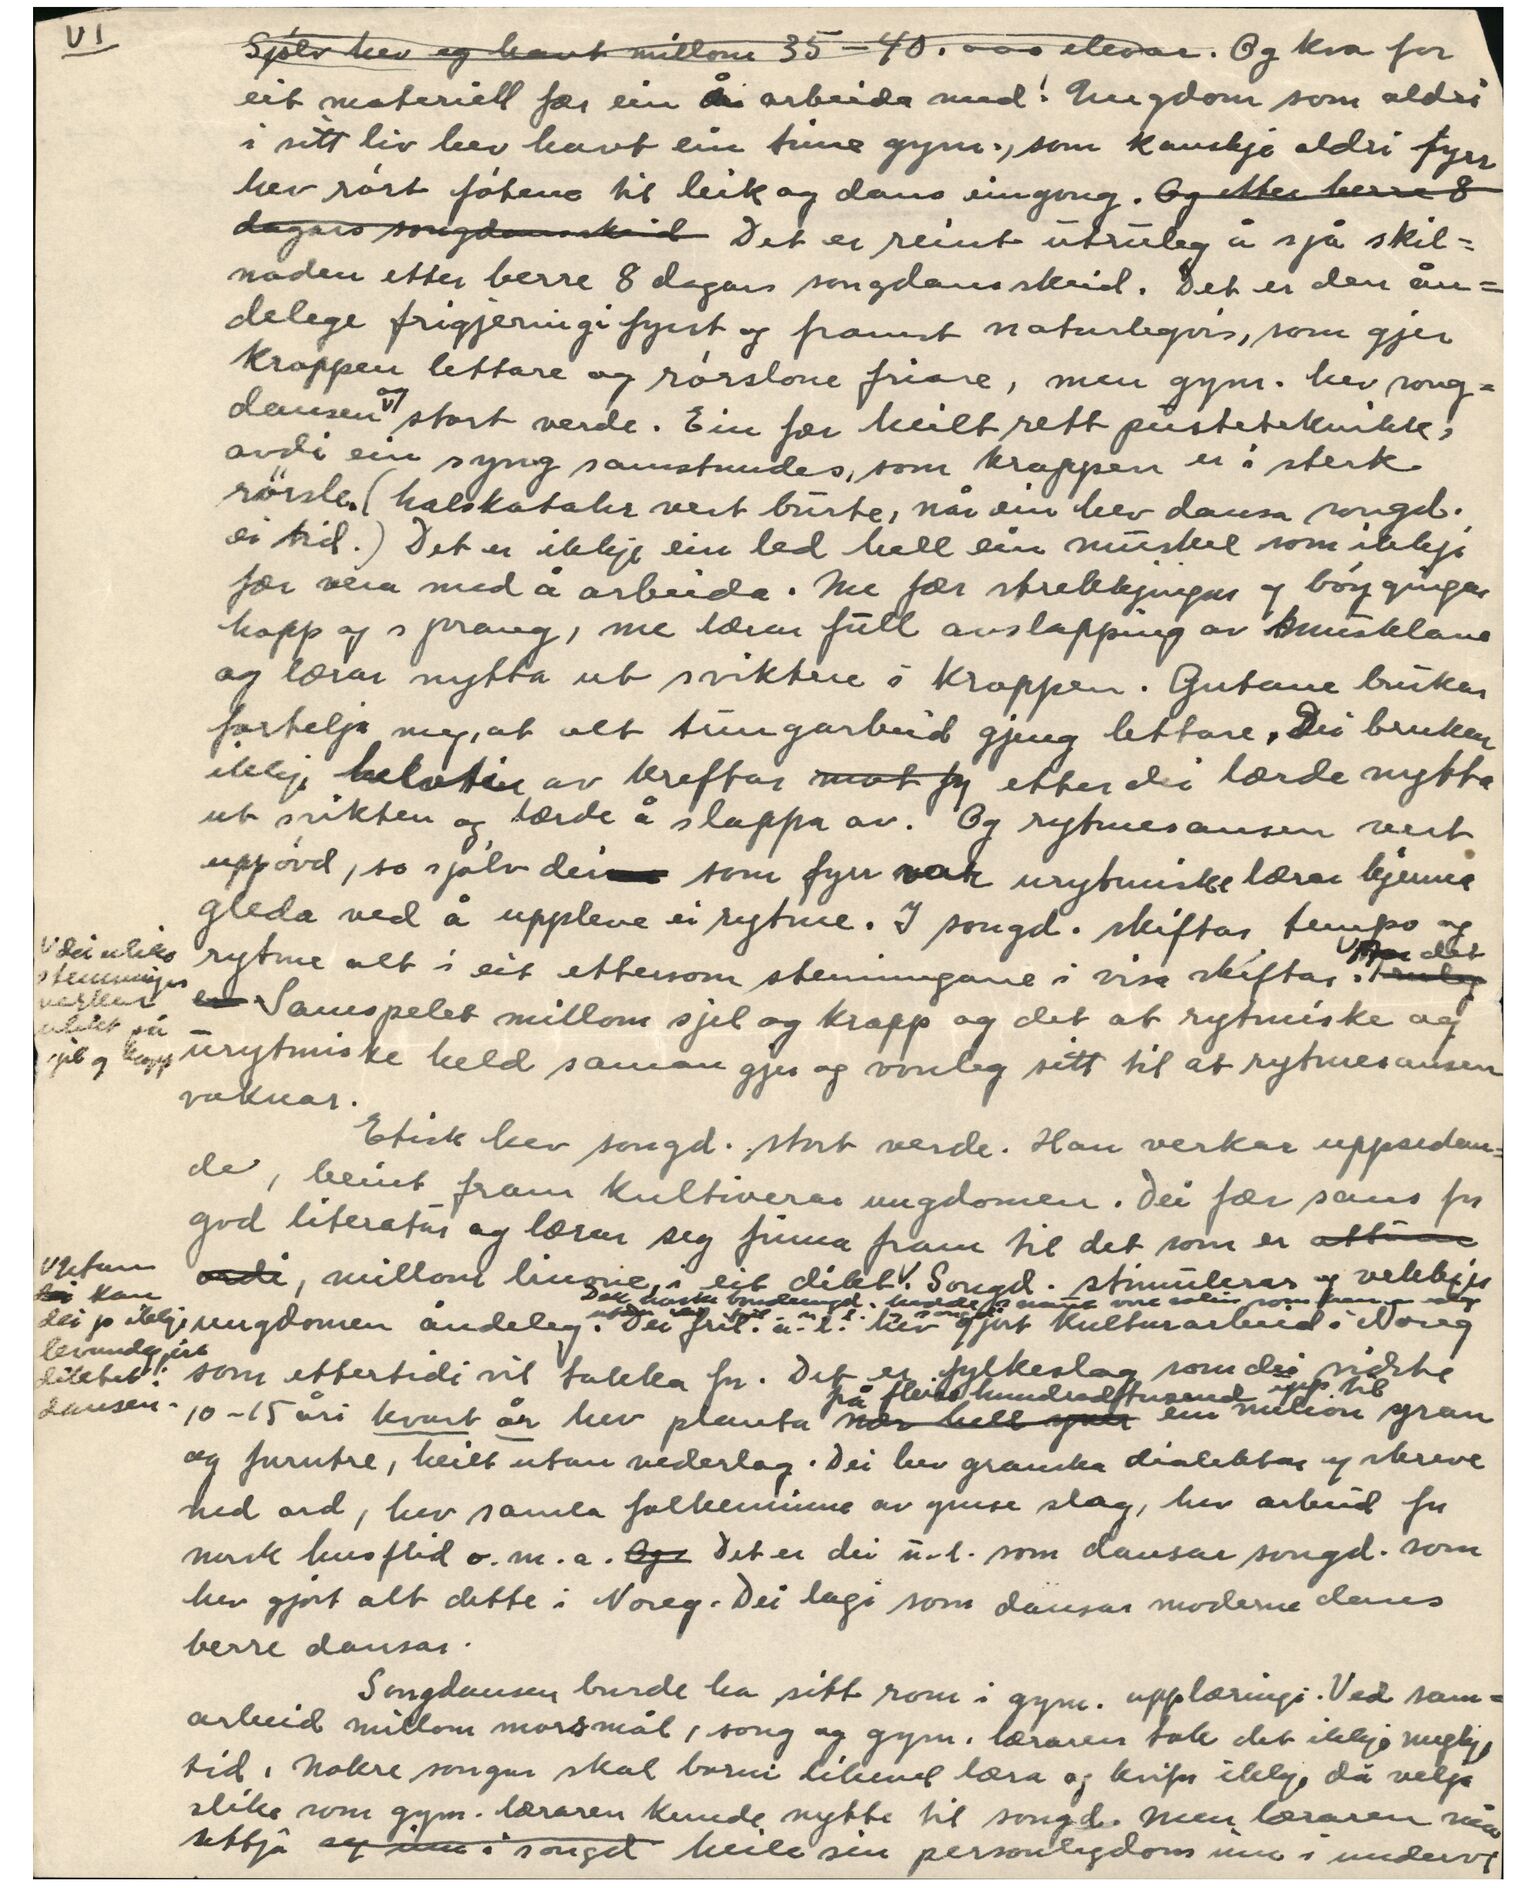 VI
Sjølv hev eg havt millom 35-40.000 elevar. Og kva for
eit materiell fær ein arbeida med! Ungdom som aldri
i sitt liv hev havt ein time gym., som kanskje aldri fyrr
hev rórt fótene til leik og dans eingong. Og etter berre 8
dagars songdansskeid Det er reint utruleg å sjå skil=
naden etter berre 8 dagars songdansskeid. Det er den ån=
delege frigjeringi fyrst og framst naturlegvis, som gjer
kroppen lettare og rórslone friare, men gym. hev song=
dansen og stort verde. Ein fær heilt rett pusteteknikk,
avdi ein syng samstundes, som kroppen er i sterk
rörsle. (halskatahr vert burte, når ein hev dansa songd.
ei tid.) Det er ikkje ein led hell ein muskel som ikkje
fær vera med å arbeida. Me fær strekkjingar og bóygingar
hopp og sprang, me lærer full avslapping av musklane
og lærar nytta ut svikten i kroppen. Gutane brukar
fortelja meg, at alt tungarbeid gjeng lettare. Dei brukar
ikkje helvtin av krefter mot fy etter dei lærde nytta
ut svikten og lærde å slappa av. Og rytmesansen vert
uppóvd, so sjólv dei som fyrr var urytmiske lærar kjenna
gleda ved å uppleve ei rytme. I songd. skiftar tempo og
rytme alt i eit ettersom stemningane i visa skiftar.
V dei ulike
stemningar
verkar
ulikt på
sjel og kropp
Samspelet millom sjel og kropp og det at rytmiske og
urytmiske held saman gjer og vonleg sitt til at rytmesansen
vaknar.
Etisk hev songd. stort verde. Han verkar uppsedan=
de, beint fram kultiverar ungdomen. Dei fær sans fr
god literatur og lærar seg finna fram til det som er
millom linone i eit dikt. V Songd. stimulerar og vekkjer
V Utan
kan
dei jo ikkje
levandegjera
diktet i
dansen.
ungdomen åndeleg. Dei fril. u.l. hev gjort kulturarbeid i Noreg
som ettertidi vil takka fr. Det er fylkeslag som dei sidste
10-15 åri kvart år hev planta på fleire hundradtusund upp til ein milion gran
og furutre, heilt utan vederlag. Dei hev granska dialektar og skreve
ned ord, hev samla folkeminne av ymse slag, hev arbeid fr
norsk husflid o.m.a. Og Det er dei u.l. som dansar songd. som
hev gjort alt dette i Noreg. Dei lagi som dansar moderne dans
berre dansar.
Songdansen burde ha sitt rom i gym. upplæringi. Ved sam=
arbeid millom morsmål, song og gym. læraren tok det ikkje mykje
tid. Nokre songar skal borni likevel læra og kvifr ikkje då velja
slike som gym. læraren kunde nytte til songd. Men læraren må
settja seg inn i songd heile sin personlegdom inn i underv